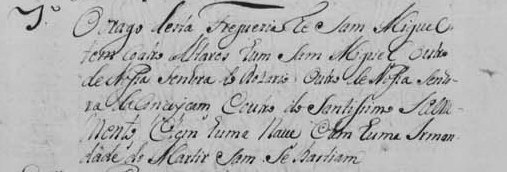 7.º
O orago desta Freguezia he Sam Miguel
tem coatro Altares hum Sam Miguel Outro
de Nossa Senhora do Rozario Outro de Nossa Senho
ra da Conceycam Eoutro do Santissimo Sacra
mento, huma Naue Com huma Irman
dade do Martir Sam Sebastiam